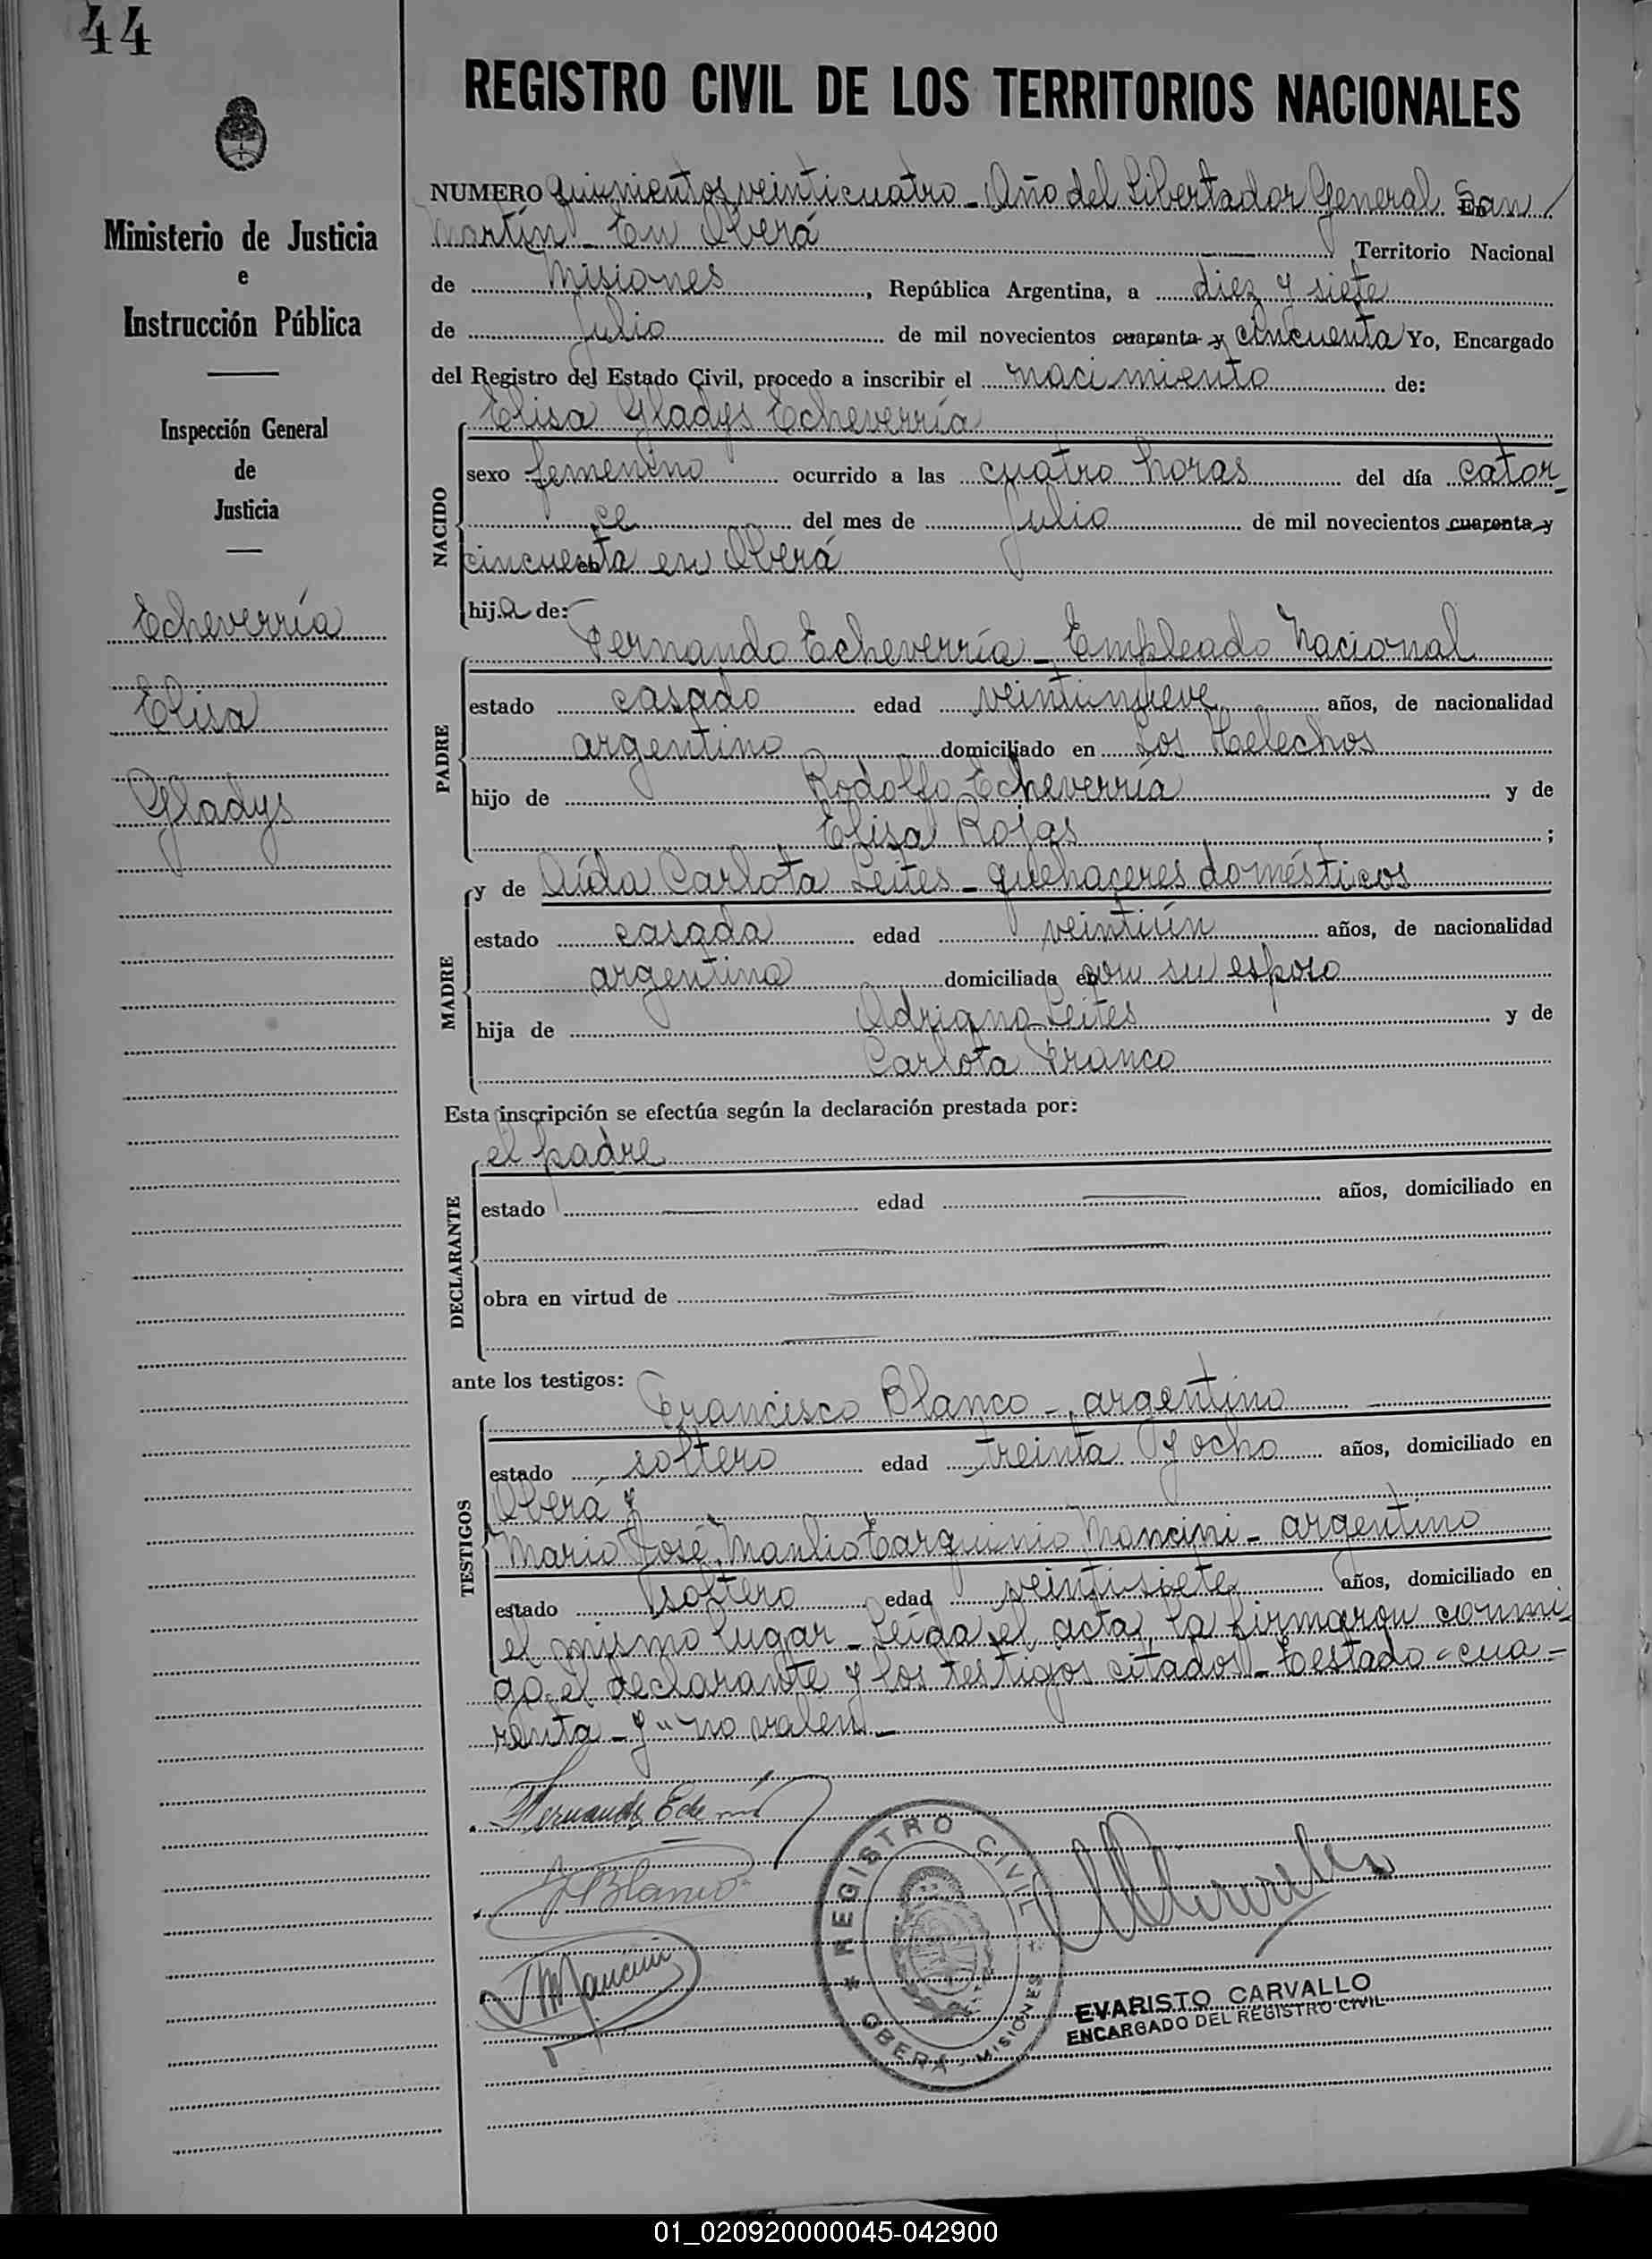 44
REGISTRO CIVIL DE LOS TERRITORIOS NACIONALES
Ministerio de Justicia
e
Instrucción Pública
Inspección General
de
Justicia
Echeverría
Elisa
Gladys
NUMERO quinientos veinticuatro - Año del Libertador General San
Martín - En Oberá Territorio Nacional
de Misiones, República Argentina, a diez y siete
de Julio de mil novecientos cuarenta y cincuenta Yo, Encargado
del Registro del Estado Civil, procedo a inscribir el nacimiento de:
Elisa Gladys Echeverría
NACIDO
sexo femenino ocurrido a las cuatro horas del día cator-
ce del mes de Julio de mil novecientos cuarenta y
cincuenta en Oberá
hija de:
PADRE
Fernando Echeverría - Empleado Nacional
estado casado edad veintinueve años, de nacionalidad
argentino domiciliado en Los Helechos
hijo de Rodolfo Echeverría y de
Elisa Rojas ;
MADRE
y de Aída Carlota Leites - quehaceres domésticos
estado casada edad veintiún años, de nacionalidad
argentina domiciliada con su esposo
hija de Adriano Leites y de
Carlota Franco
Esta inscripción se efectúa según la declaración prestada por:
DECLARANTE
el padre
estado edad años, domiciliado en
obra en virtud de
ante los testigos:
TESTIGOS
Francisco Blanco - argentino
estado soltero edad treinta y ocho años, domiciliado en
Oberá y
Mario José Manlio Tarquinio Mancini - argentino
estado soltero edad veintisiete años, domiciliado en
el mismo lugar - Leída el acta, la firmaron conmi
go el declarante y los testigos citados - Testado - cua-
renta - y " no valen -
Fernando Echeverría
F Blanco
JMMancini
REGISTRO CIVIL
* OBERÁ - MISIONES *
EVARISTO CARVALLO
ENCARGADO DEL REGISTRO CIVIL
01_020920000045-042900